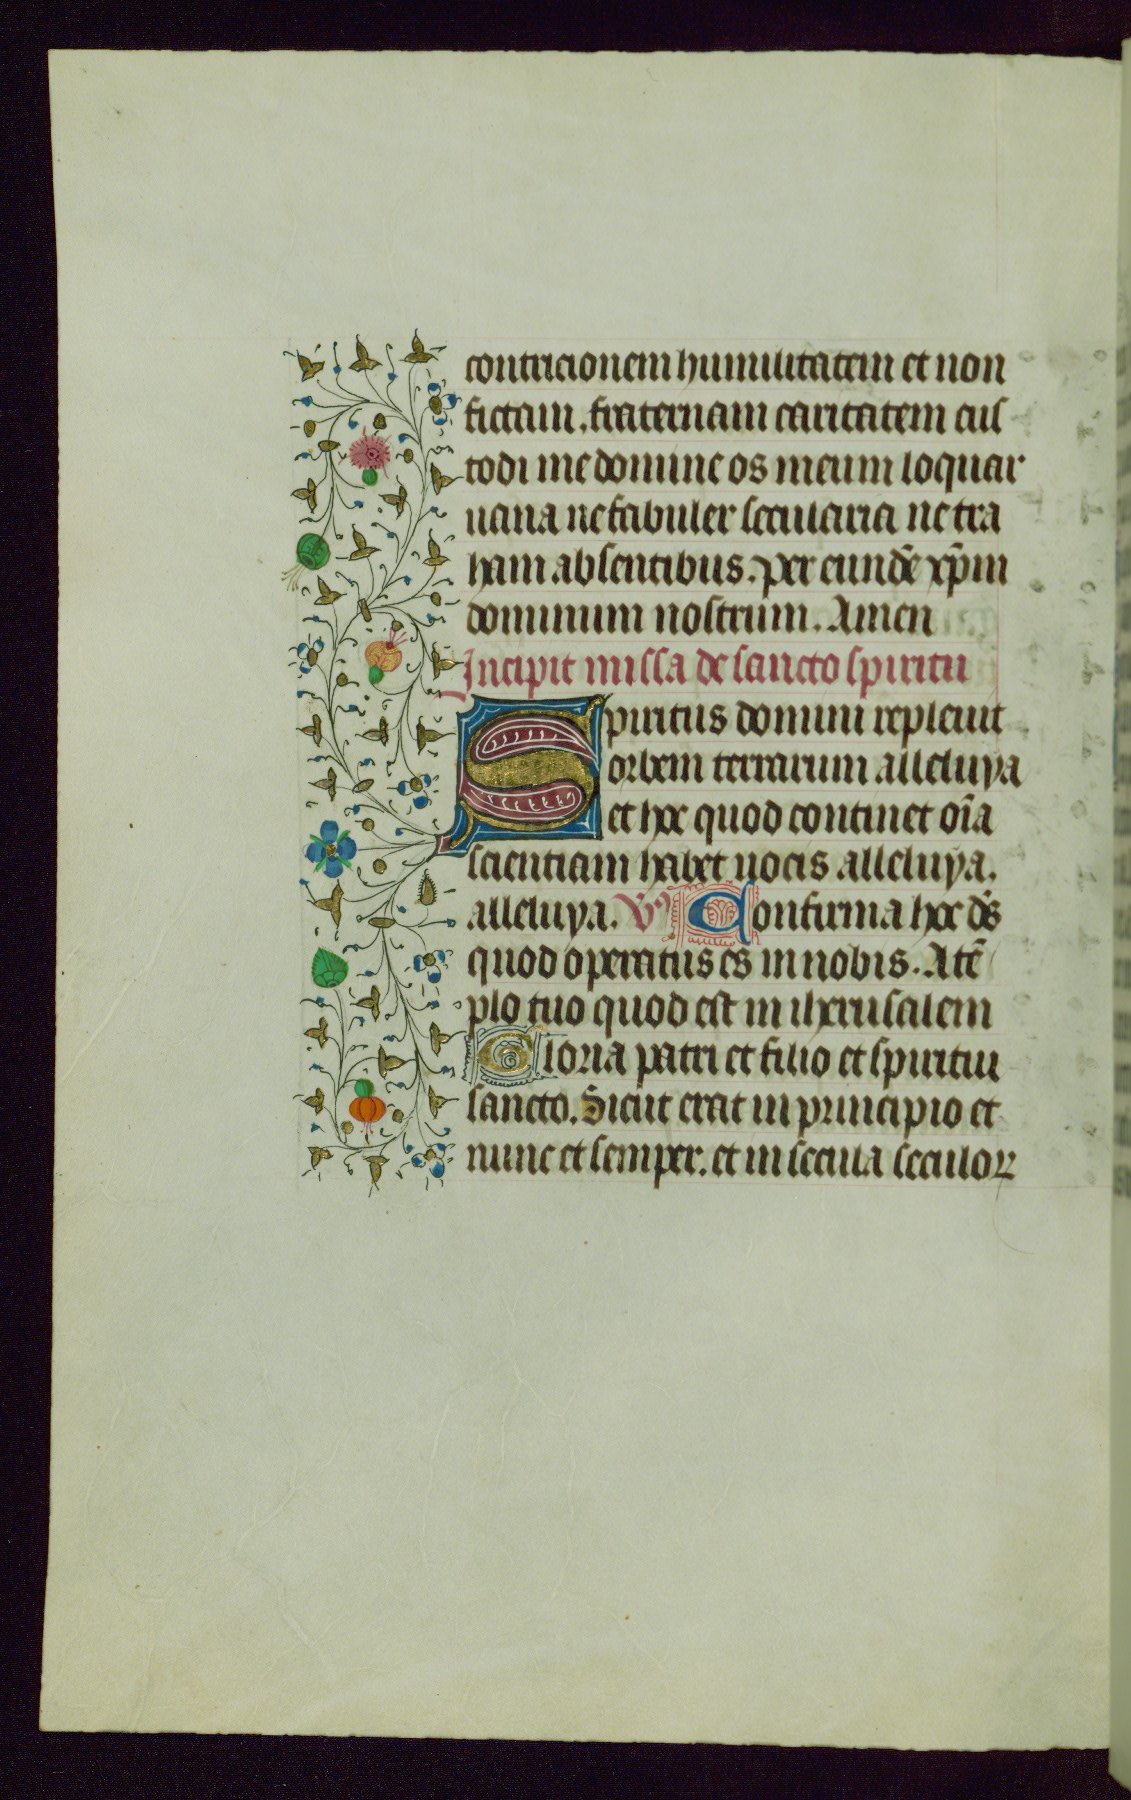 contricionem humilitatem et non
fictam. fraternam caritatem cus
todi me domine os meum loquar
uana ne fabuler secularia ne tra
ham absentibus. per eundē xp̄m
dominum nostrum. Amen
Incipit missa de sancto spiritu
Spiritus domini repleuit
orbem terrarum alleluya
et hoc quod continet oīa
scientiam habet uocis alleluya.
alleluya. V Confirma hoc ds̄
quod operatus es in nobis. A tē
plo tuo quod est in iherusalem
Gloria patri et filio et spiritui
sancto. Sicut erat in principio et
nunc et semper. et in secula seculoꝝ